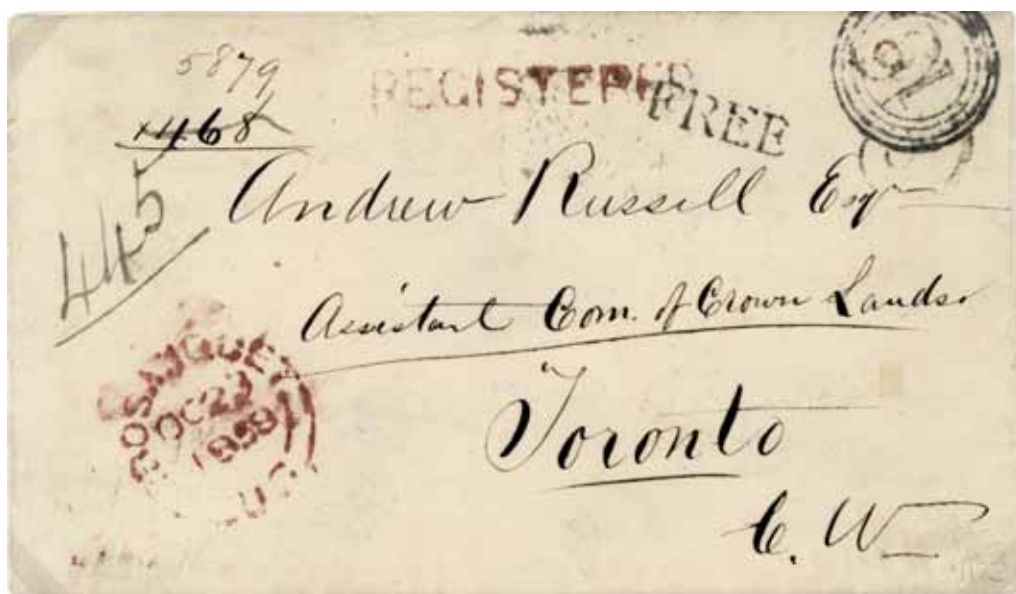 5879
1468
REGISTERED
FREE
445
Andrew Russell Esqr
Assistant Com. of Crown Lands.
Toronto
C. W.
BOSANQUET
OC 22
1859
U.C.